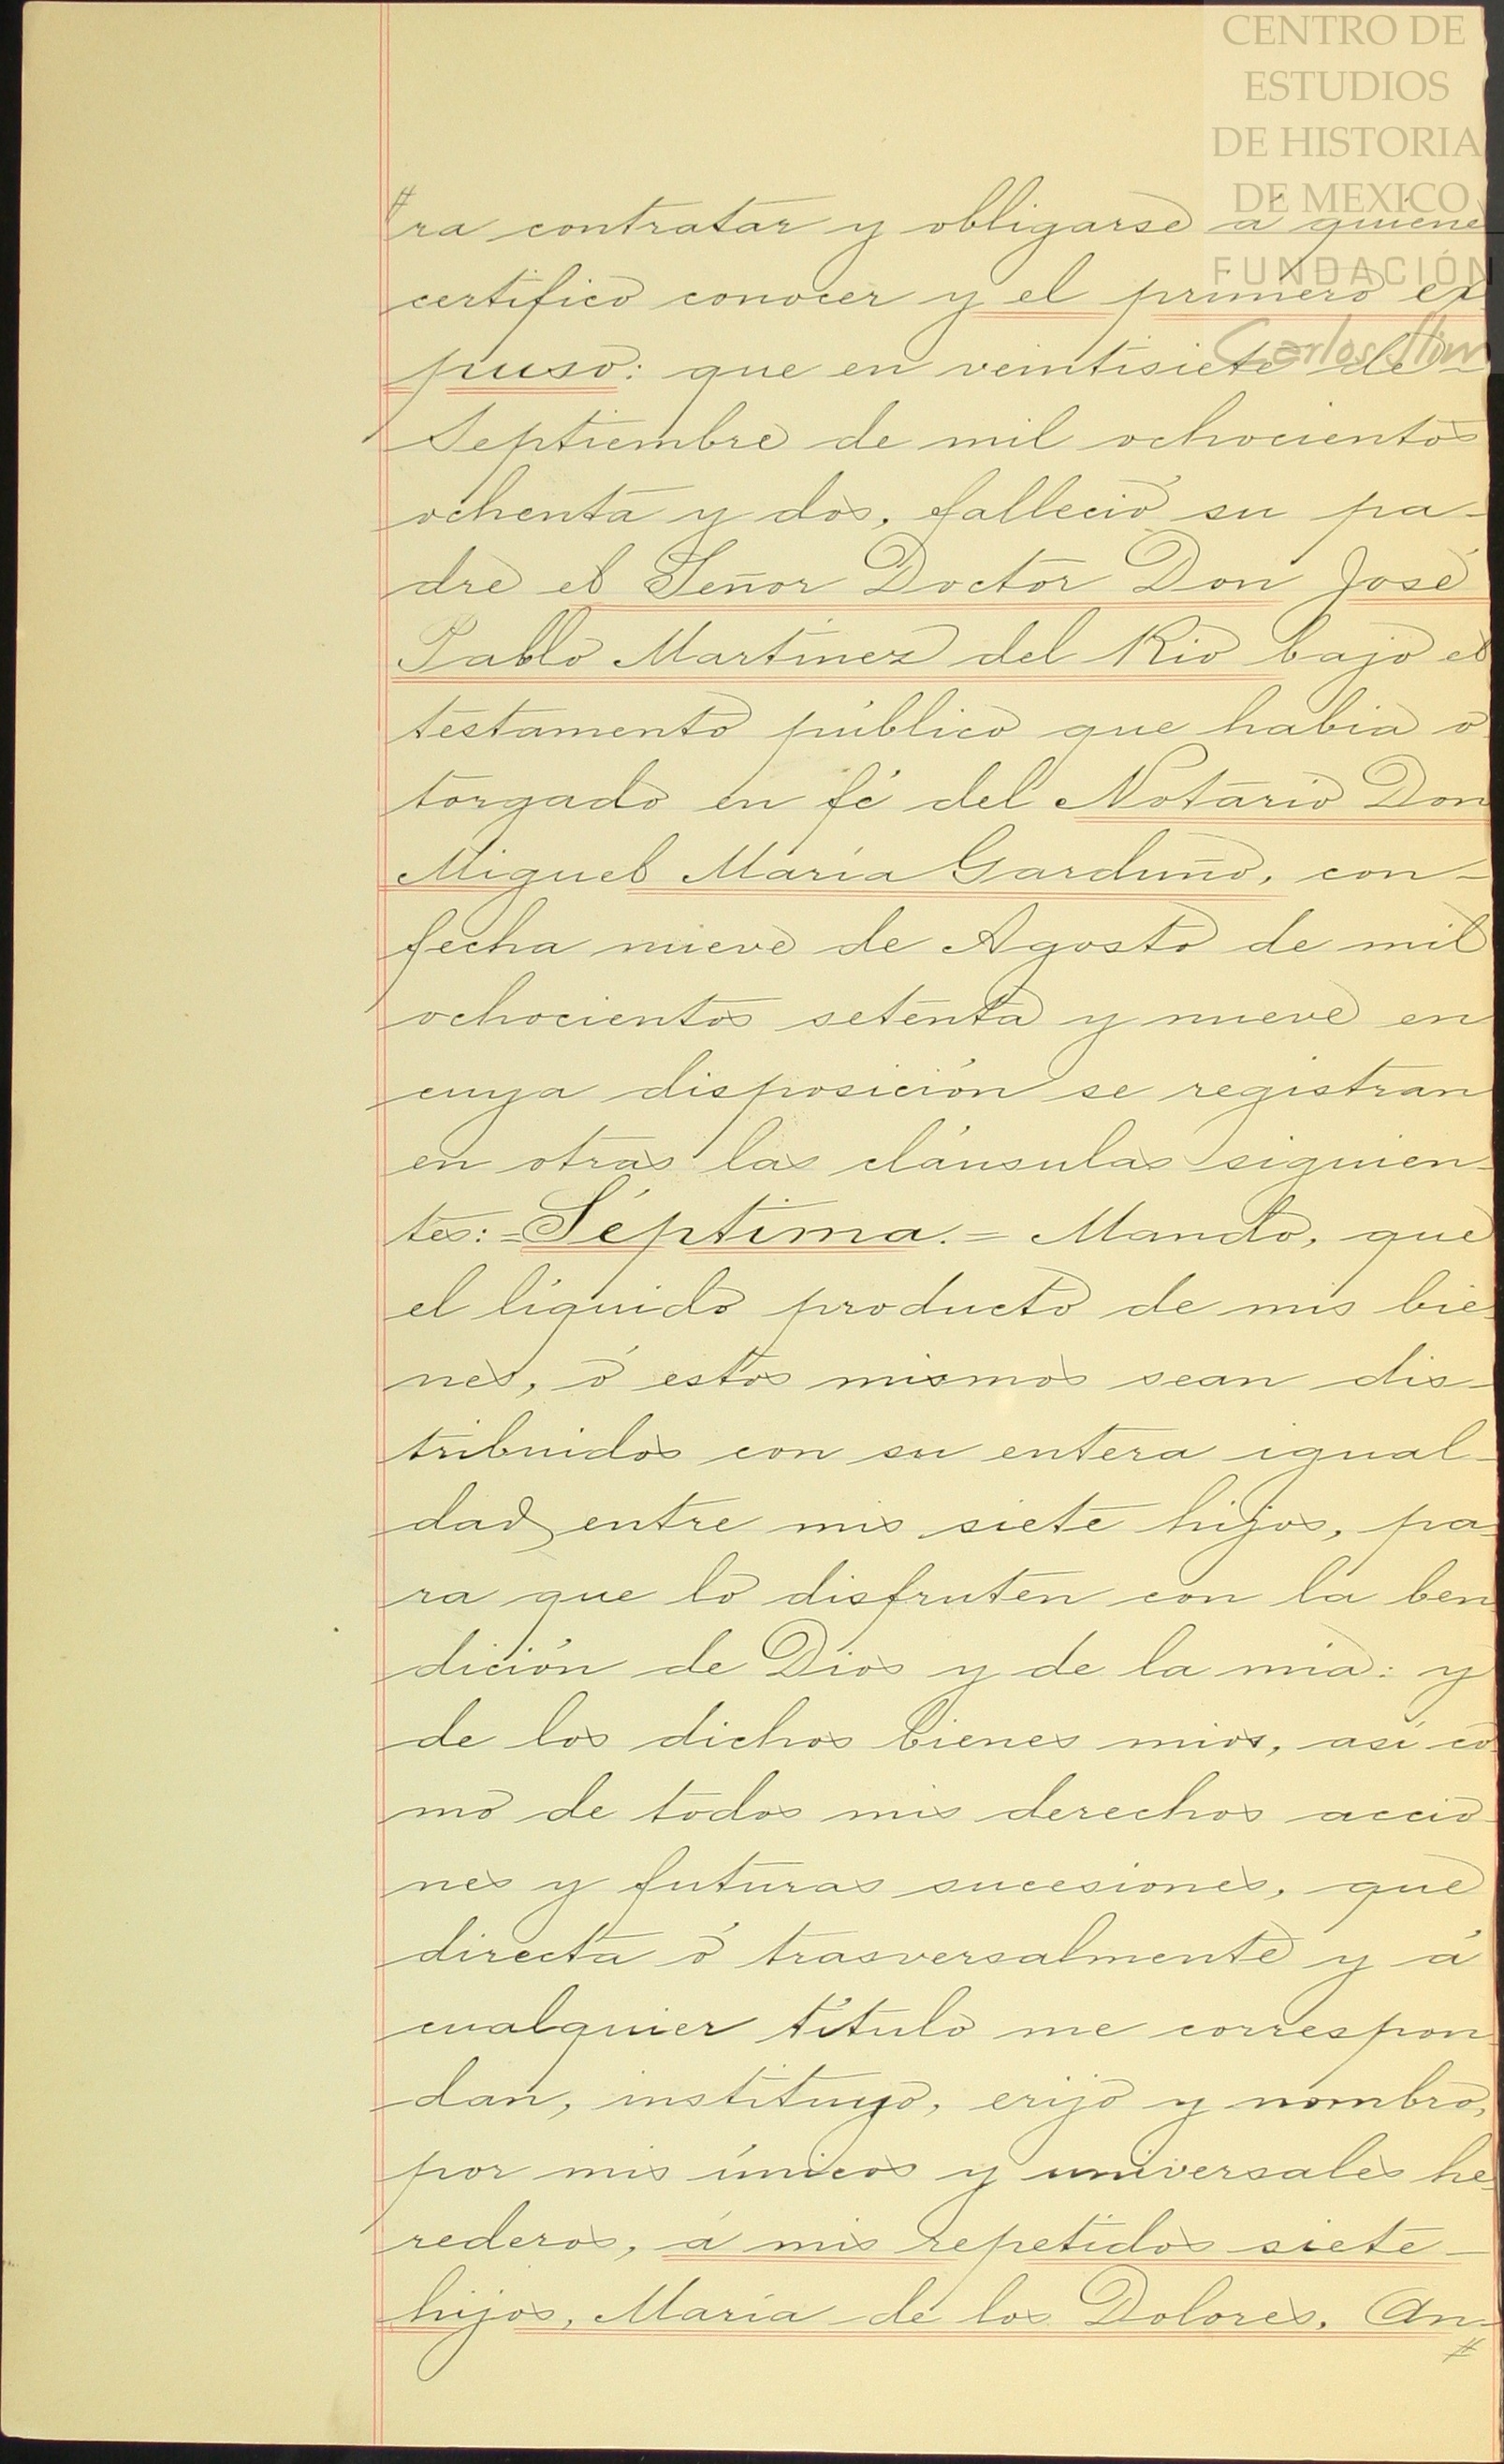 CENTRO DE
ESTUDIOS
DE HISTORIA
DE MEXICO
FUNDACIÓN
Carlos Slim
#
ra contratar y obligarse á quiene
certifico conocer y el primero ex
puso: que en veintisiete de
Septiembre de mil ochocientos
ochenta y dos, falleció su pa-
dre el Señor Doctor Don José
Pablo Martinez del Rio bajo el
testamento público que habia o
torgado en fé del Notario Don
Miguel María Garduño, con-
fecha nueve de Agosto de mil
ochocientos setenta y nueve en
cuya disposición se registran
en otras las cláusulas siguien-
tes:=Séptima.= Mando, que
el líquido producto de mis bie
nes, ó estos mismos sean dis-
tribuidos con su entera igual-
dad entre mis siete hijos, pa-
ra que lo disfruten con la ben
dición de Dios y de la mia: y
de los dichos bienes mios, así co
mo de todos mis derechos accio
nes y futuras sucesiones, que
directa ó trasversalmente y á
cualquier título me correspon
dan, instituyo, erijo y nombro,
por mis únicos y universales he
rederos, á mis repetidos siete-
hijos, María de los Dolores, An-
#